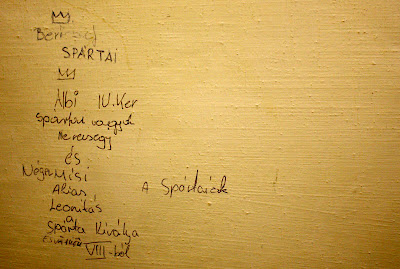 SPÁRTAI
Albi IV. Ker
Spártai vagyok
Merevsegy
és
Néger Misi
Alias
Leonitás
a
Spárta Királya
VIII-ból
A Spártaiak